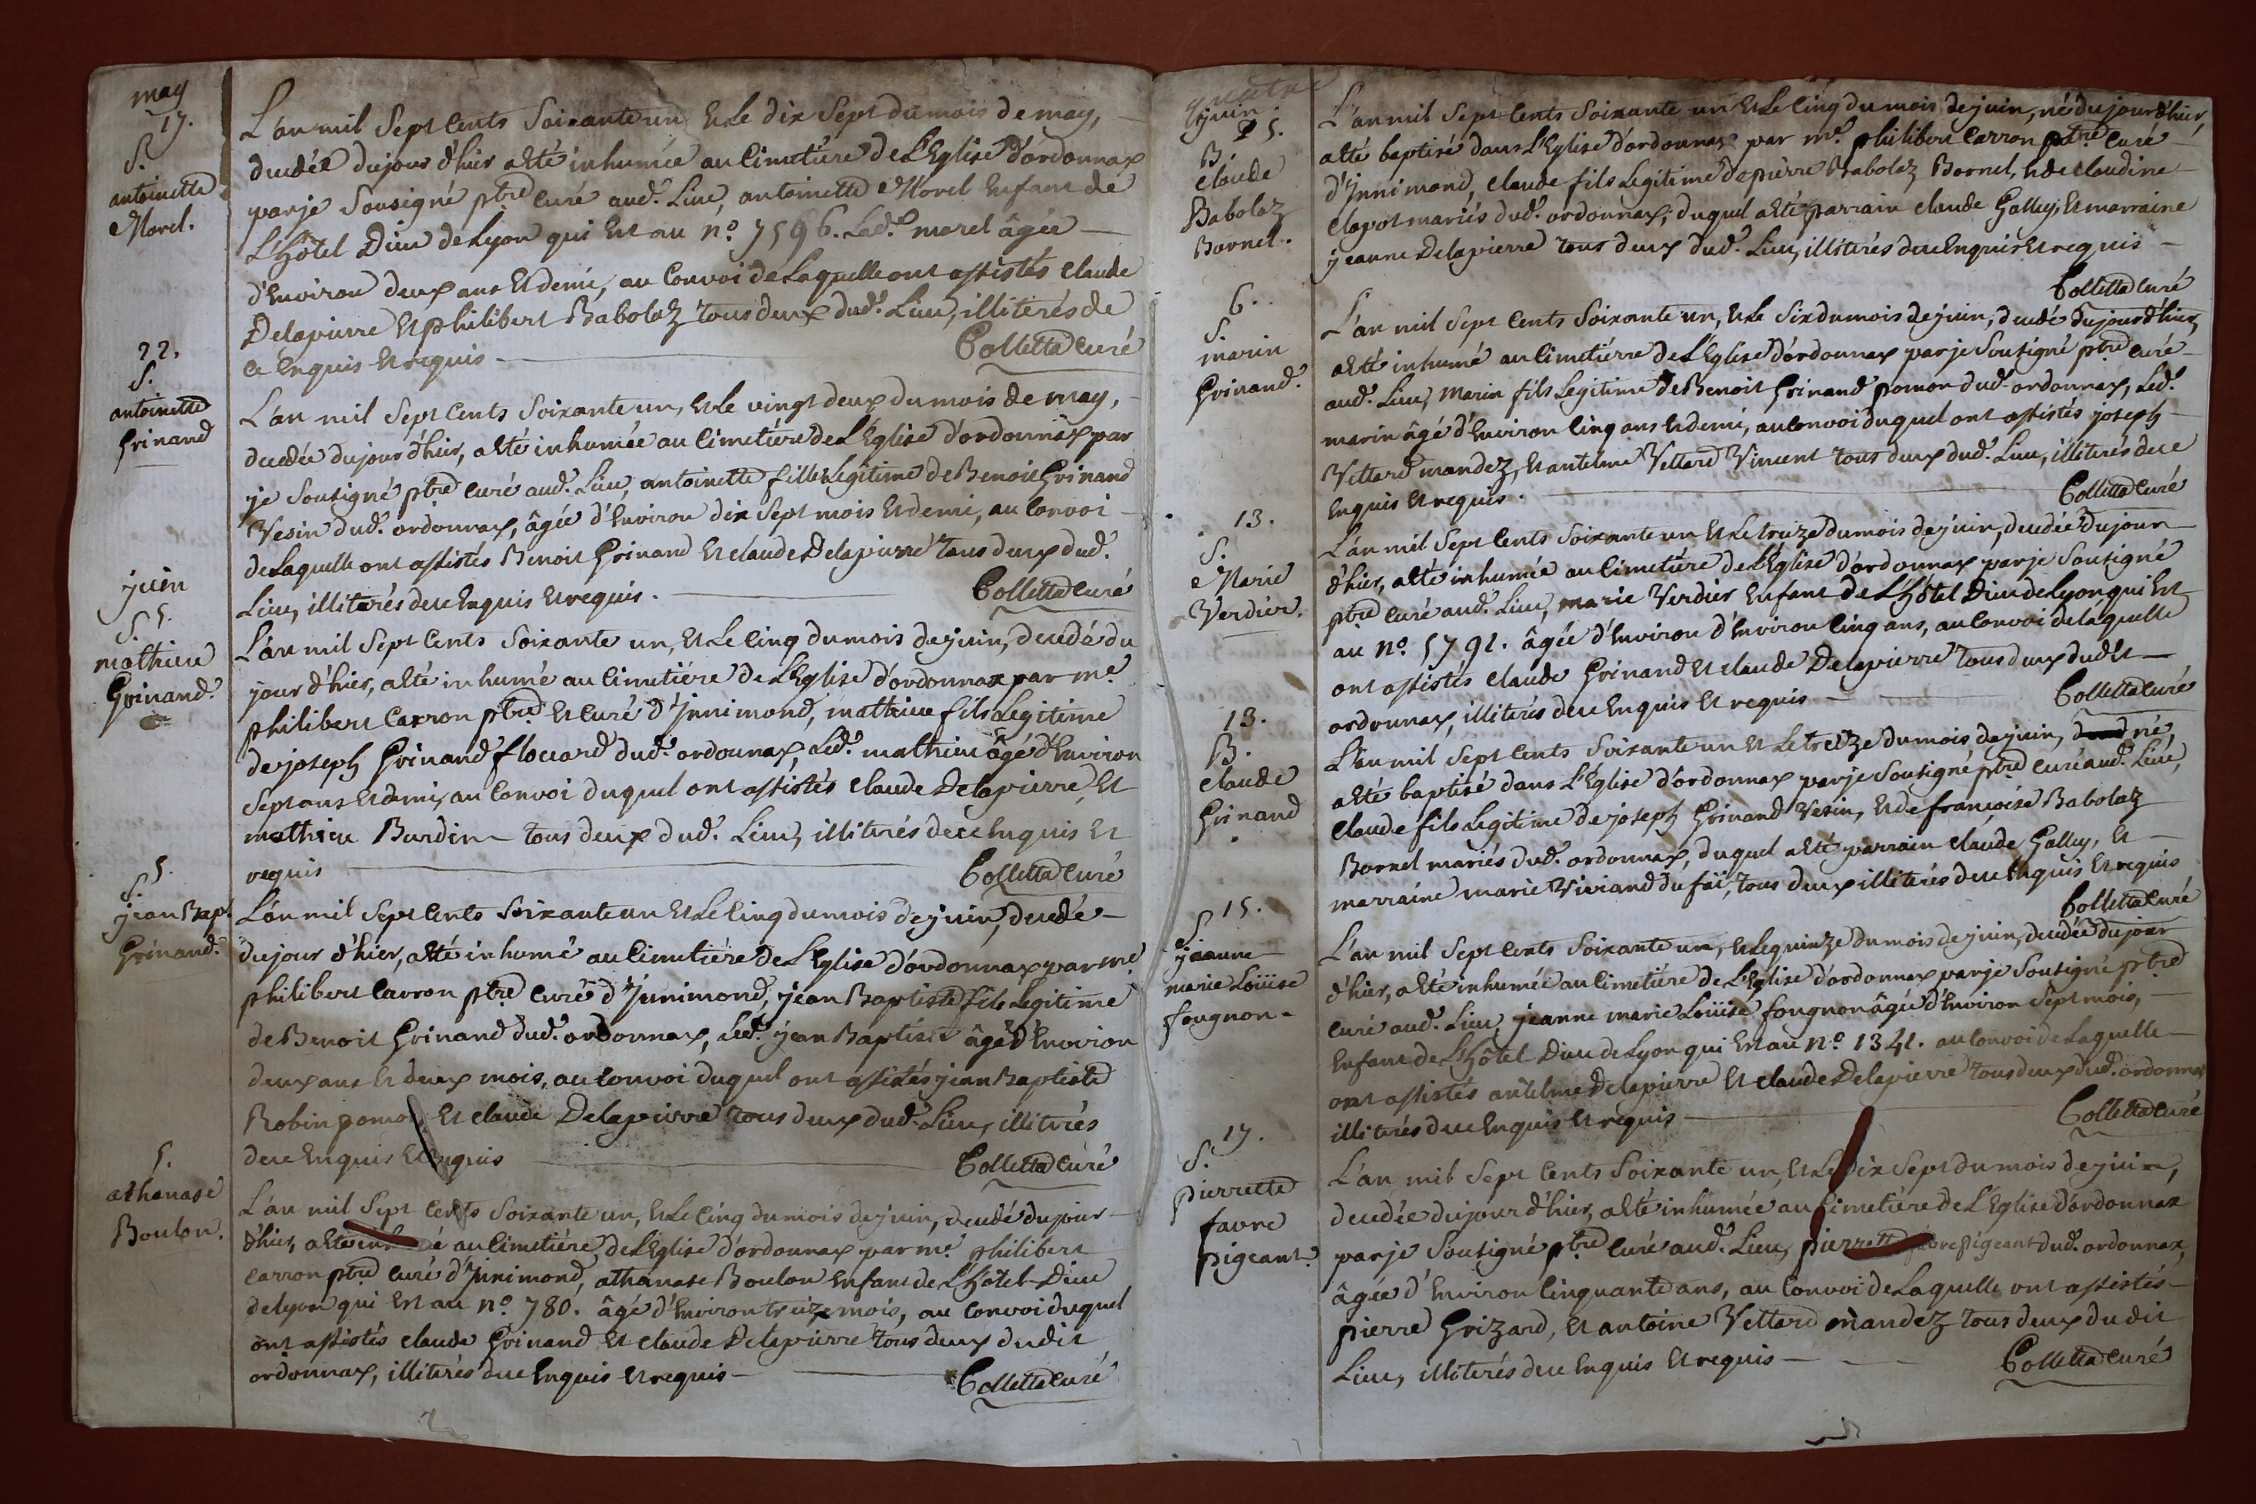 may
17.
S.
antoinette
Morel.
L'an mil Sept Cents Soixante un Et Le dix Sept du mois de may,
decedée du jour d'hier a eté inhumée au Cimetiére de L'Eglise d'ordonnax
par je Sousigné ptre Curé aud. Lieu, antoinette Morel Enfant de
L'hôtel Dieu de Lyon qui Est au n.º 7596. Lad.e morel âgée
d'Environ deux ans Et demi, au Convoi de Laquelle ont assistés Claude
Delapierre Et philibert Babolaz tous deux dud. Lieu, illiterés de
ce Enquis Et requis
Colletta Curé
22.
S.
antoinette
Grinand
L'an mil Sept Cents Soixante un, Et Le vingt deux du mois de may,
decedée du jour d'hier, a eté inhumée au Cimetiére de L'Eglise d'ordonnax par
je Sousigné ptre Curé aud. Lieu, antoinette fille Legitime de Benoit Grinand
Vesin dud. ordonnax, âgée d'Environ dix Sept mois Et demi, au Convoi
de Laquelle ont assistés Benoit Grinand Et claude Delapierre tous deux dud.
Lieu, illiterés de ce Enquis Et requis.
Colletta Curé
juin
S. 5.
mathieu
Grinand.
L'an mil Sept Cents Soixante un, Et Le Cinq du mois de juin, decedé du
jour d'hier, a eté inhumé au Cimetiére de L'Eglise d'ordonnax par m.e
philibert Carron ptre Et Curé d'Jnnimond, mathieu fils Legitime
de joseph Grinand flouard dud. ordonnax, Led. mathieu âgé d'Environ
Sept ans Et demi, au Convoi duquel ont assistés claude Delapierre, Et
mathieu Burdin tous deux dud. Lieu, illiterés de ce Enquis Et
requis
Colletta Curé
5.
S.
jean Bapt
Grinand.
L'an mil Sept Cents Soixante un Et Le Cinq du mois de juin, decedé
du jour d'hier, a eté inhumé au Cimetiére de L'Eglise d'ordonnax par m.e
philibert Carron ptre Curé d'Jnnimond, jean Baptiste fils Legitime
de Benoit Grinand dud. ordonnax, Led. jean Baptiste âgé d'Environ
deux ans Et deux mois, au Convoi duquel ont assistés jean Baptiste
Robin pomon, Et claude Delapierre tous deux dud. Lieu, illiterés
de ce Enquis Et requis
Colletta Curé
5.
athanase
Boulon.
L'an mil Sept Cents Soixante un, Et Le Cinq du mois de juin, decedé du jour
d'hier, a eté inhumé au Cimetiére de L'Eglise d'ordonnax par m.e philibert
Carron ptre Curé d'Jnnimond, athanase Boulon Enfant de L'hôtel-Dieu
de Lyon qui Est au n.º 780. âgé d'Environ treize mois, au Convoi duquel
ont assistés claude Grinand Et claude Delapierre tous deux dudit
ordonnax, illiterés de ce Enquis Et requis
Colletta Curé
juin.
5.
B.
Claude
Babolaz
Bornel.
L'an mil Sept Cents Soixante un Et Le Cinq du mois de juin, né du jour d'hier,
a eté baptisé dans L'Eglise d'ordonnax par m.e philibert Carron ptre Curé
d'Jnnimond, Claude fils Legitime de pierre Babolaz Bornel, Et de claudine
Clapot mariés dud. ordonnax; duquel a eté parrain claude Galley, Et marraine
jeanne Delapierre tous deux dud. Lieu, illiterés de ce Enquis Et requis
Colletta Curé
6.
S.
marin
Grinand.
L'an mil Sept Cents Soixante un, Et Le Six du mois de juin, decedé du jour d'hier,
a eté inhumé au Cimetiérre de L'Eglise d'ordonnax par je Sousigné ptre Curé
aud. Lieu, Marin fils Legitime de Benoit Grinand pomon dud. ordonnax, Led.
marin âgé d'Environ Cinq ans Et demi, au Convoi duquel ont assistés joseph
Vettard mandez, Et antelme Vettard Vincent tous deux dud. Lieu, illiterés de ce
Enquis Et requis.
Colletta Curé
13.
S.
Marie
Verdier.
L'an mil Sept Cents Soixante un Et Le treize du mois de juin, decedée du jour
d'hier, a eté inhumée au Cimetiére de L'Eglise d'ordonnax par je Sousigné
ptre Curé aud. Lieu, marie Verdier Enfant de L'hôtel Dieu de Lyon qui Est
au n.º 5791. âgée d'Environ d'Environ Cinq ans, au Convoi de laquelle
ont assistés claude Grinand Et claude Delapierre tous deux dudit
ordonnax, illiterés de ce Enquis Et requis
Colletta Curé
13.
B.
Claude
Grinand
L'an mil Sept Cents Soixante un Et Le treize du mois de juin, né,
a eté baptisé dans L'Eglise d'ordonnax par je Sousigné ptre Curé aud. Lieu,
Claude fils Legitime de joseph Grinand Vesin, Et de françoise Babolaz
Bornel mariés dud. ordonnax, duquel a eté parrain claude Galley, Et
marraine marie Viviand dufaï, tous deux illiterés de ce Enquis Et requis
Colletta Curé
15.
S.
jeanne
marie Loüise
fougnon
L'an mil Sept Cents Soixante un, Et Le quinze du mois de juin, decedée du jour
d'hier, a eté inhumée au Cimetiére de L'Eglise d'ordonnax par je Sousigné ptre
Curé aud. Lieu, jeanne marie Loüise fougnon âgée d'Environ Sept mois,
Enfant de L'hôtel-Dieu de Lyon qui Est au n.º 1341. au Convoi de Laquelle
ont assistés antelme Delapierre Et claude Delapierre tous deux dud. ordonnax
illiterés de ce Enquis Et requis
Colletta Curé
17.
S.
pierrette
favre
pigeant.
L'an mil Sept Cents Soixante un, Et Le Dix Sept du mois de juin,
decedée du jour d'hier, a eté inhumée au Cimetiére de L'Eglise d'ordonnax
par je Sousigné ptre Curé aud. Lieu, pierrette favre pigeant dud. ordonnax,
âgée d'Environ Cinquante ans, au Convoi de Laquelle ont assistés
pierre Grizard, Et antoine Vettard mandez tous deux dudit
Lieu, illiterés de ce Enquis Et requis
Colletta Curé